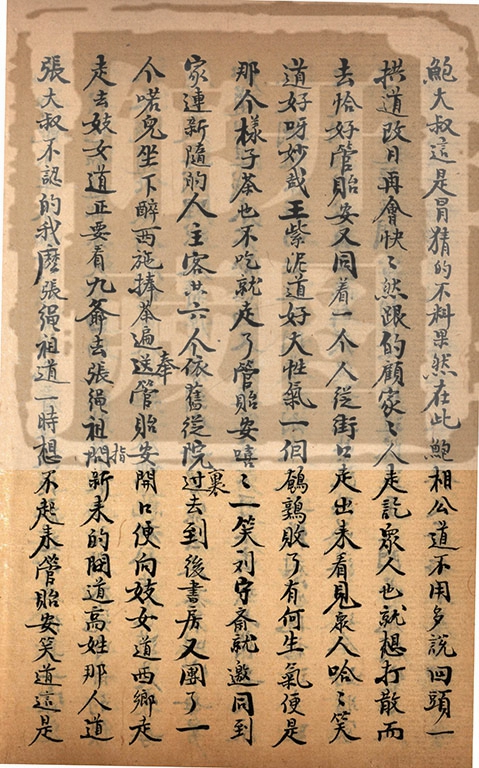 鮑大叔這是冒猜的不料果然在此鮑相公道不用多說回頭一
拱道改日再會快〻然跟的顧家〻人走訖衆人也就想打散而
去恰好管貽安又同着一个人從街口走出來看見衆人哈〻笑
道好呀妙哉王紫泥道好大性氣一個鵪鶉敗了有何生氣便是
那个樣子茶也不吃就走了管貽安嘻〻一笑刘守斋就邀同到
家連新隨的人主客共六个依舊從院裏過去到後書房又團了一
个喏兒坐下醉西施捧茶遍送奉管貽安開口便向妓女道西鄉走
走去妓女道正要看九爺去張繩祖指問新来的閗道高姓那人道
張大叔不認的我麼張繩祖道一時想不起来管貽安笑道這是